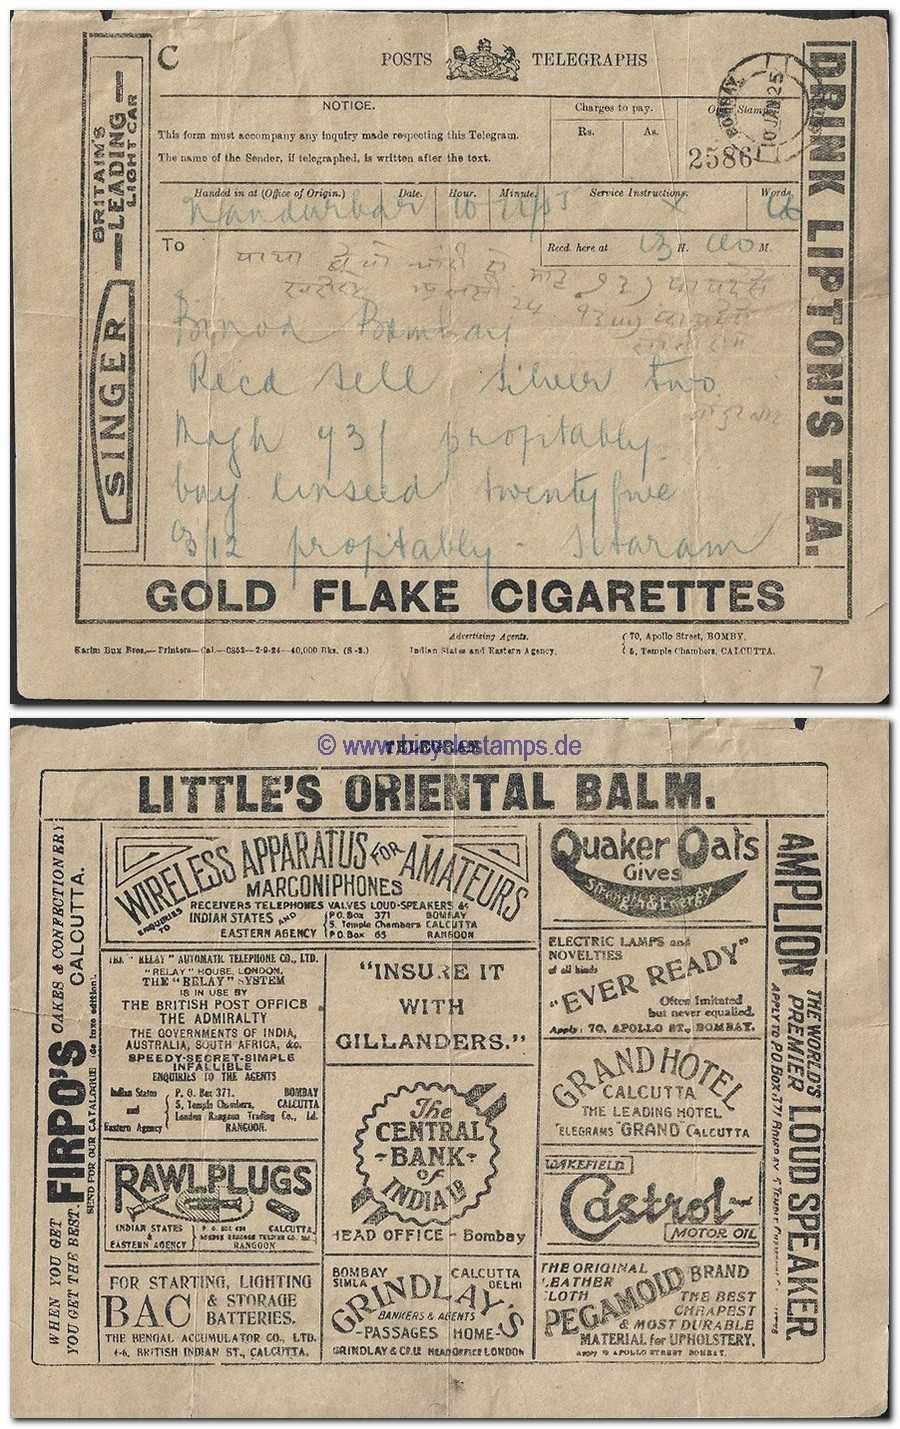 C
POSTS TELEGRAPHS
NOTICE.
This form must accompany any inquiry made respecting this Telegram.
The name of the Sender, if telegraphed, is written after the text.
Charges to pay.
Rs. As.
Stamp
BOMBAY
10 JAN 25
2586
Handed in at (Office of Origin.) Date. Hour. Minute. Service Instructions. Words.
Nandurbar 10
To
Recd. here at H. M.
Binod Bombay
Recd sell silver two
Magh 73/ profitably
buy linseed twentyfive
profitably - Sitaram
BRITAIM'S
LEADING
LIGHT CAR
SINGER
DRINK LIPTON'S TEA.
GOLD FLAKE CIGARETTES
Karim Bux Bros.— Printers—Cal.—0852—2-9-24—40,000 Bks. (S-3.)
Advertising Agents.
Indian States and Eastern Agency.
70, Apollo Street, BOMBY.
5, Temple Chambers, CALCUTTA.
7
© www.bicyclestamps.de
TELEGRAM
LITTLE'S ORIENTAL BALM.
WHEN YOU GET FIRPO'S CAKES & CONFECTIONERY
YOU GET THE BEST. CALCUTTA.
SEND FOR OUR CATALOGUE (de luxe edition).
WIRELESS APPARATUS FOR AMATEURS
MARCONIPHONES
RECEIVERS TELEPHONES VALVES LOUD-SPEAKERS &c
ENQUIRIES TO
INDIAN STATES AND
EASTERN AGENCY
P.O. Box 371 BOMBAY
5, Temple Chambers CALCUTTA
P.O. Box 65 RANGOON
"RELAY" AUTOMATIC TELEPHONE CO., LTD.
"RELAY" HOUSE, LONDON.
THE "RELAY" SYSTEM
IS IN USE BY
THE BRITISH POST OFFICE
THE ADMIRALTY
THE GOVERNMENTS OF INDIA,
AUSTRALIA, SOUTH AFRICA, &c.
SPEEDY-SECRET-SIMPLE
INFALLIBLE
ENQUIRIES TO THE AGENTS
Indian States
and
Eastern Agency
P. O. Box 371. BOMBAY
5, Temple Chambers, CALCUTTA
London Rangoon Trading Co., Ld.
RANGOON.
RAWLPLUGS
INDIAN STATES
&
EASTERN AGENCY
CALCUTTA
RANGOON
FOR STARTING, LIGHTING
BAC & STORAGE
BATTERIES.
THE BENGAL ACCUMULATOR CO., LTD.
4-6, BRITISH INDIAN ST., CALCUTTA.
"INSURE IT
WITH
GILLANDERS."
The
CENTRAL
BANK
of
INDIA LD
HEAD OFFICE - Bombay
BOMBAY CALCUTTA
SIMLA DELHI
GRINDLAY'S
BANKERS & AGENTS
-PASSAGES HOME-
GRINDLAY & CO. LD HEAD OFFICE LONDON
Quaker Oats
Gives
Strength & Energy
ELECTRIC LAMPS and
NOVELTIES
of all kinds
"EVER READY"
Often Imitated
but never equalled.
Apply: 70, APOLLO ST., BOMBAY.
GRAND HOTEL
CALCUTTA
THE LEADING HOTEL
TELEGRAMS "GRAND" CALCUTTA
WAKEFIELD
Castrol
MOTOR OIL
THE ORIGINAL
LEATHER
CLOTH
PEGAMOID BRAND
THE BEST
CHEAPEST
& MOST DURABLE
MATERIAL for UPHOLSTERY.
APPLY 70 APOLLO STREET BOMBAY.
AMPLION THE WORLD'S PREMIER LOUD SPEAKER
APPLY TO PO Box 371 BOMBAY